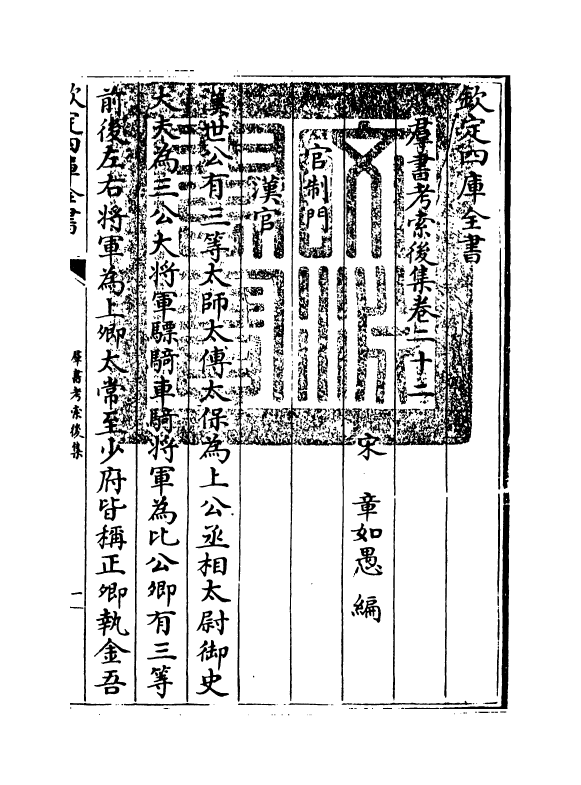 欽定四庫全書
羣書考索後集卷二十二
宋 章如愚 編
官制門
漢官
漢世公有三等太師太傅太保為上公丞相太尉御史
大夫為三公大將軍驃騎車騎將軍為比公卿有三等
前後左右將軍為上卿太常至少府皆稱正卿執金吾
欽定四庫全書
羣書考索後集
一